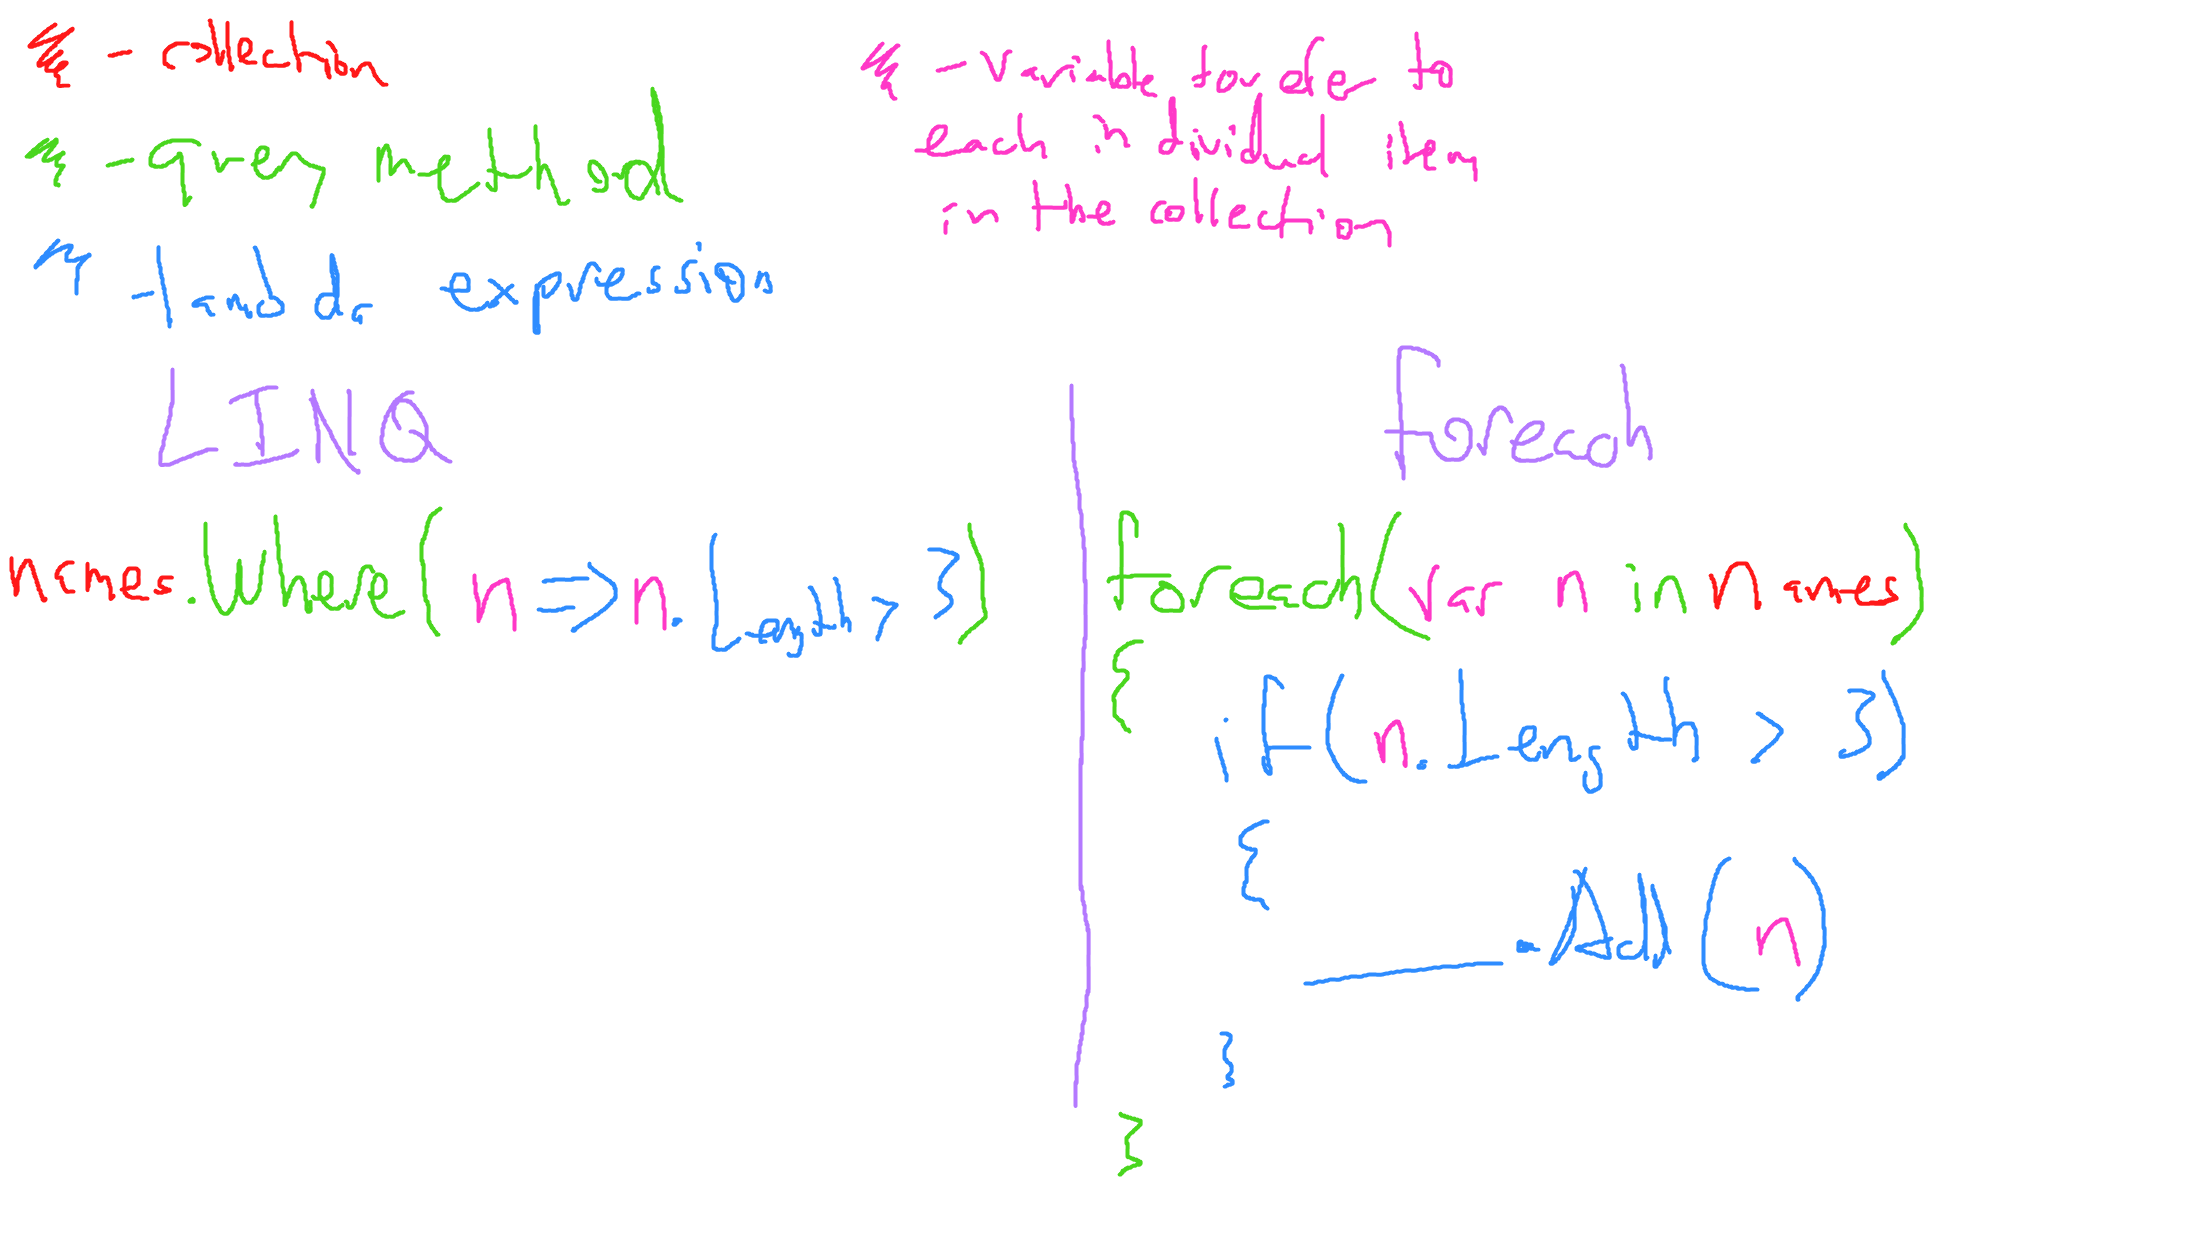 - collection
- query method
- lambda expression
- variable to refer to
each individual item
in the collection
LINQ
foreach
names.Where(n => n.Length > 3)
foreach(var n in names)
{
if(n.Length > 3)
{
______.Add(n)
}
}